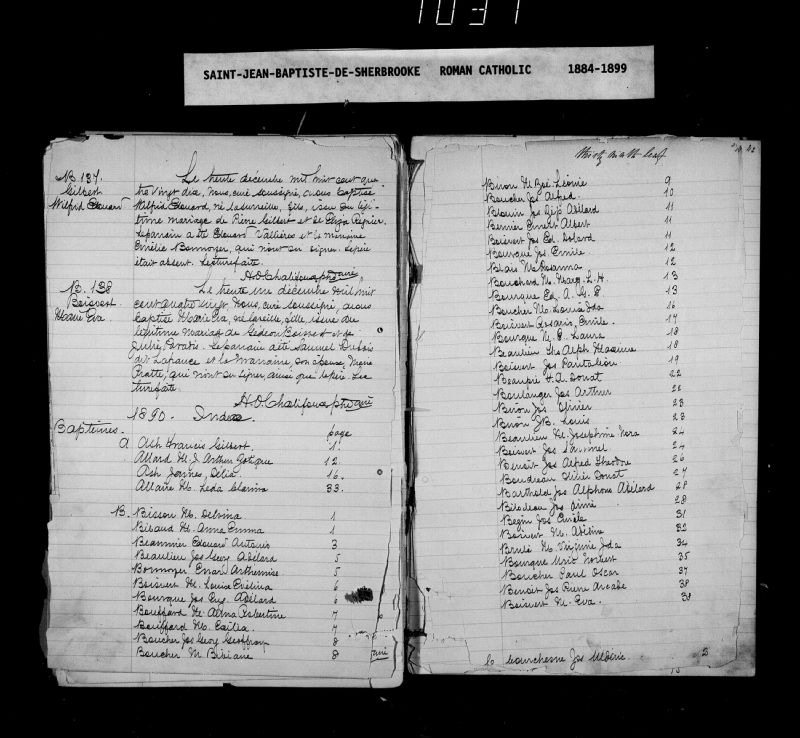 1037
SAINT-JEAN-BAPTISTE-DE-SHERBROOKE ROMAN CATHOLIC 1884-1899
B. 137.
Gilbert
Wilfrid Edouard
Le trente décembre mil huit cent quatre
vingt dix, nous, curé soussigné, avons baptisé
Wilfrid Edouard, né la veille, fils, issu du légi-
time mariage de Pierre Gilbert et de Eliza Régnier.
Le parrain a été Edouard Vallières et la marraine
Emélie Bonnoyer, qui n'ont su signer. Le père
était absent. Lecture faite.
H.O. Chalifoux ptre curé
B. 138
Boisvert
Marie Eva.
Le trente un décembre mil huit
cent quatre vingt Nous, curé soussigné, avons
baptisé Marie Eva, née la veille, fille, issue du
légitime mariage de Gédéon Boisvert et de
Julie Le parrain a été Samuel Dubois
dit Lafrance et la marraine, son épouse, Marie
Pratte, qui n'ont su signer, ainsi que le père. Lec
ture faite.
H.O. Chalifoux ptre curé
1890. Index.
Baptêmes. page
A Ash Francis Gilbert 1
Allard M. J. Arthur 12
Ash James, Délia 16
Allaire M. Leda Clarina 33
B. Bisson M. Delvina 1
Bibaud M. Anna Emma 1
Edouard Antonio 3
Beaulieu Jos Georg Adélard 5
Bonnoyer Arthemise 5
Boisvert M. Louise Evélina 6
Bourque Jos Eug. Adélard 6
Bouffard M. Alma Robertine 7
Bouffard M. 7
Boucher Jos Georg Geoffroy 8
Boucher M. Bibiane 8
Biron M. Zoé Léonie 9
Boucher Jos Alfred 10
Blouin Jos Adélard 11
Bernier Ernest Albert 11
Boisvert Jos Ed. 11
Bourque Jos Emile 12
Blais M. Rosanna 12
Bouchard M. Marg. L. H. 13
Bourque Ed. A. G. 13
Boucher M. Louise Ida 16
Boisvert Rosario, Emile 17
Bourque N. E. Laura 18
Beaulieu Ths Alph Maxime 18
Boisvert Jos Pantaléon 19
Beaupré H. A. Donat 22
Boulanger Jos Arthur 22
Biron Jos Olivier 23
Biron J.B. Louis 23
Beaulieu M. Josephine Nora 24
Boisvert Jos Samuel 24
Benoit Jos Alfred Théodore 26
Boudreau Donat 27
Jos Alphonse Adélard 28
Bilodeau Jos Aimé 28
Bégin Jos 31
Boisvert M. 32
Brulé M. Virginie Ida 34
Bourque Norbert 35
Boucher Paul Oscar 37
Benoit Jos Pierre 38
Boisvert M. Eva 38
C Jos 3